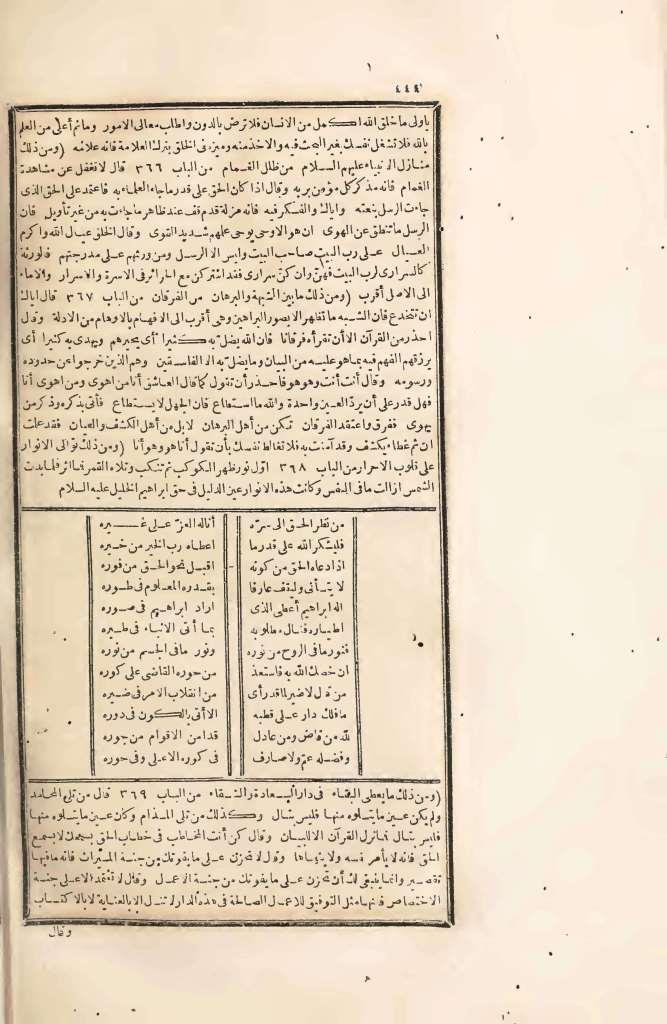 ٤٤٤
ياولى ما خلق الله أكمل من الانسان فلا ترض بالدون واطلب معالى الامور وما ثم أعلى من العلم
بالله فلا تشغل نفسك بغير البحث فيه والاخذ منه وميزه فى الخلق بترك العلامة فانه علامة (ومن ذلك
منازل الانبياء عليهم السلام من ظلل الغمام من الباب ٣٦٦ قال لا تغفل عن مشاهدة
الغمام فانه مذكر كل مؤمن بربه وقال اذا كان الحق على قدر ما جاء العلماء به فاعتمد على الحق الذى
جاءت الرسل بنعته واياك والفكر فيه فانه مزلة قدم قف عند ظاهر ما جاءت به من غير تأويل فان
الرسل ما تنطق عن الهوى ان هو الا وحى يوحى علمهم شديد القوى وقال الخلق عيال الله واكرم
العيال على رب البيت صاحب البيت وليس الا الرسل ومن ورثهم على مدرجتهم فالورثة
كالسرارى لرب البيت فهن وان كن سرارى فقد اشتركن مع الحرائر فى الاسرة والاسرار والاماء
الى الاصل أقرب (ومن ذلك ما بين الشبهة والبرهان من الفرقان من الباب ٣٦٧ قال اياك
ان تنخدع فان الشبه ما تظهر الا بصور البراهين وهى أقرب الى الافهام بالاوهام من الادلة وقال
احذر من القرآن الا أن تقرأه فرقانا فان الله يضل به كثيرا أى يحيرهم ويهدى به كثيرا أى
يرزقهم الفهم فيه بما هو عليه من البيان وما يضل به الا الفاسقين وهم الذين خرجوا عن حدوده
ورسومه وقال أنت أنت وهو هو فاحذر أن تقول كما قال العاشق أنا من اهوى ومن اهوى أنا
فهل قدر على أن يرد العين واحدة والله ما استطاع فان الجهل لا يستطاع فأتى بذكره وذكر من
يهوى ففرق واعتقد الفرقان تكن من أهل البرهان لا بل من أهل الكشف والعيان فقد علمت
ان ثم غطاء يكشف وقد آمنت به فلا تغالط نفسك بأن تقول أنا هو وهو أنا (ومن ذلك توالى الانوار
على قلوب الاحرار من الباب ٣٦٨ اول نور ظهر الكوكب ثم تنكب وتلاه القمر فما اثر فلما بدت
الشمس ازالت ما فى النفس وكانت هذه الانوار عين الدليل فى حق ابراهيم الخليل عليه السلام
من نظر الحق الى سره اناله العز على غيره
فليشكر الله على قدر ما اعطاه رب الخير من خيره
اذا دعاه الحق من كونه اقبل نحو الحق من فوره
لا يتأنى وليقف عارفا بقدره المعلوم فى طوره
اله ابراهيم أعطى الذى اراد ابراهيم فى صوره
اطياره فنال مطلوبه بما أتى الانباء فى طيره
فنور ما فى الروح من نوره ونور ما فى الجسم من نوره
ان خصك الله به فاستعذ من حوره القاضى على كوره
من قال لا ضير لما قد رأى من انقلاب الامر فى ضيره
ما فلك دار على قطبه الا أتى بالكون فى دوره
لله من قاض ومن عادل قد امن الاقوام من جوره
وفضله عم ولا صارف فى كوره الاعلى وفى حوره
(ومن ذلك ما يعطى البقاء فى دار السعادة والشقاء من الباب ٣٦٩ قال من تلى المحامد
ولم يكن عين ما يتلوه منها فليس بتال وكذلك من تلى المذام وكان عين ما يتلوه منها
فليس بتال فما نزل القرآن الا للبيان وقال كن أنت المخاطب فى خطاب الحق بسمعك لا بسمع
الحق فانه لا يأمر نفسه ولا ينهاها وقال لا تحزن على ما يفوتك من جنة الميراث فانه ما فيها
تقصير وانما ينبغى لك أن تحزن على ما يفوتك من جنة الاعمال وقال لا تعتمد الا على جنة
الاختصاص فانها مثل التوفيق للاعمال الصالحة فى هذه الدار لا تنال الا بالعناية لا بالاكتساب
وقال